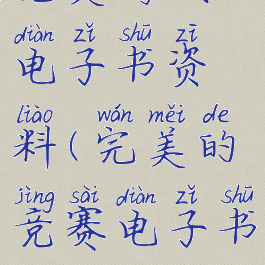 diàn zǐ shū zī
电子书资
liào wán měi de
料(完美的
jìng sài diàn zǐ shū
竞赛电子书